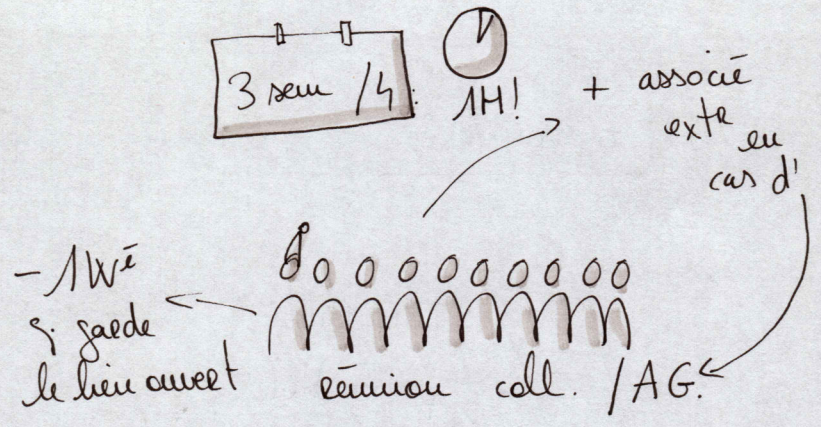 3 sem /4:
1H!
+ associé
extR
en
cas d'
- 1Wé
q. garde
le lieu ouvert
réunion coll. /AG.